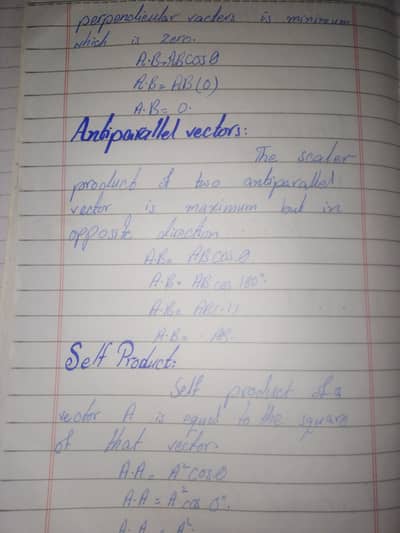 perpendicular vectors is minimum
which is zero.
A.B=ABCosθ
A.B= AB(0)
A.B= 0.
Antiparallel vectors:
The scaler
product of two antiparallel
vector is maximum but in
opposite direction
A.B= ABcosθ.
A.B= AB cos 180°.
A.B= AB(-1)
A.B= -AB.
Self Product:
Self product of a
vector A is equal to the square
of that vector.
A.A= A²cosθ
A.A = A²cos 0°.
A.A = A².